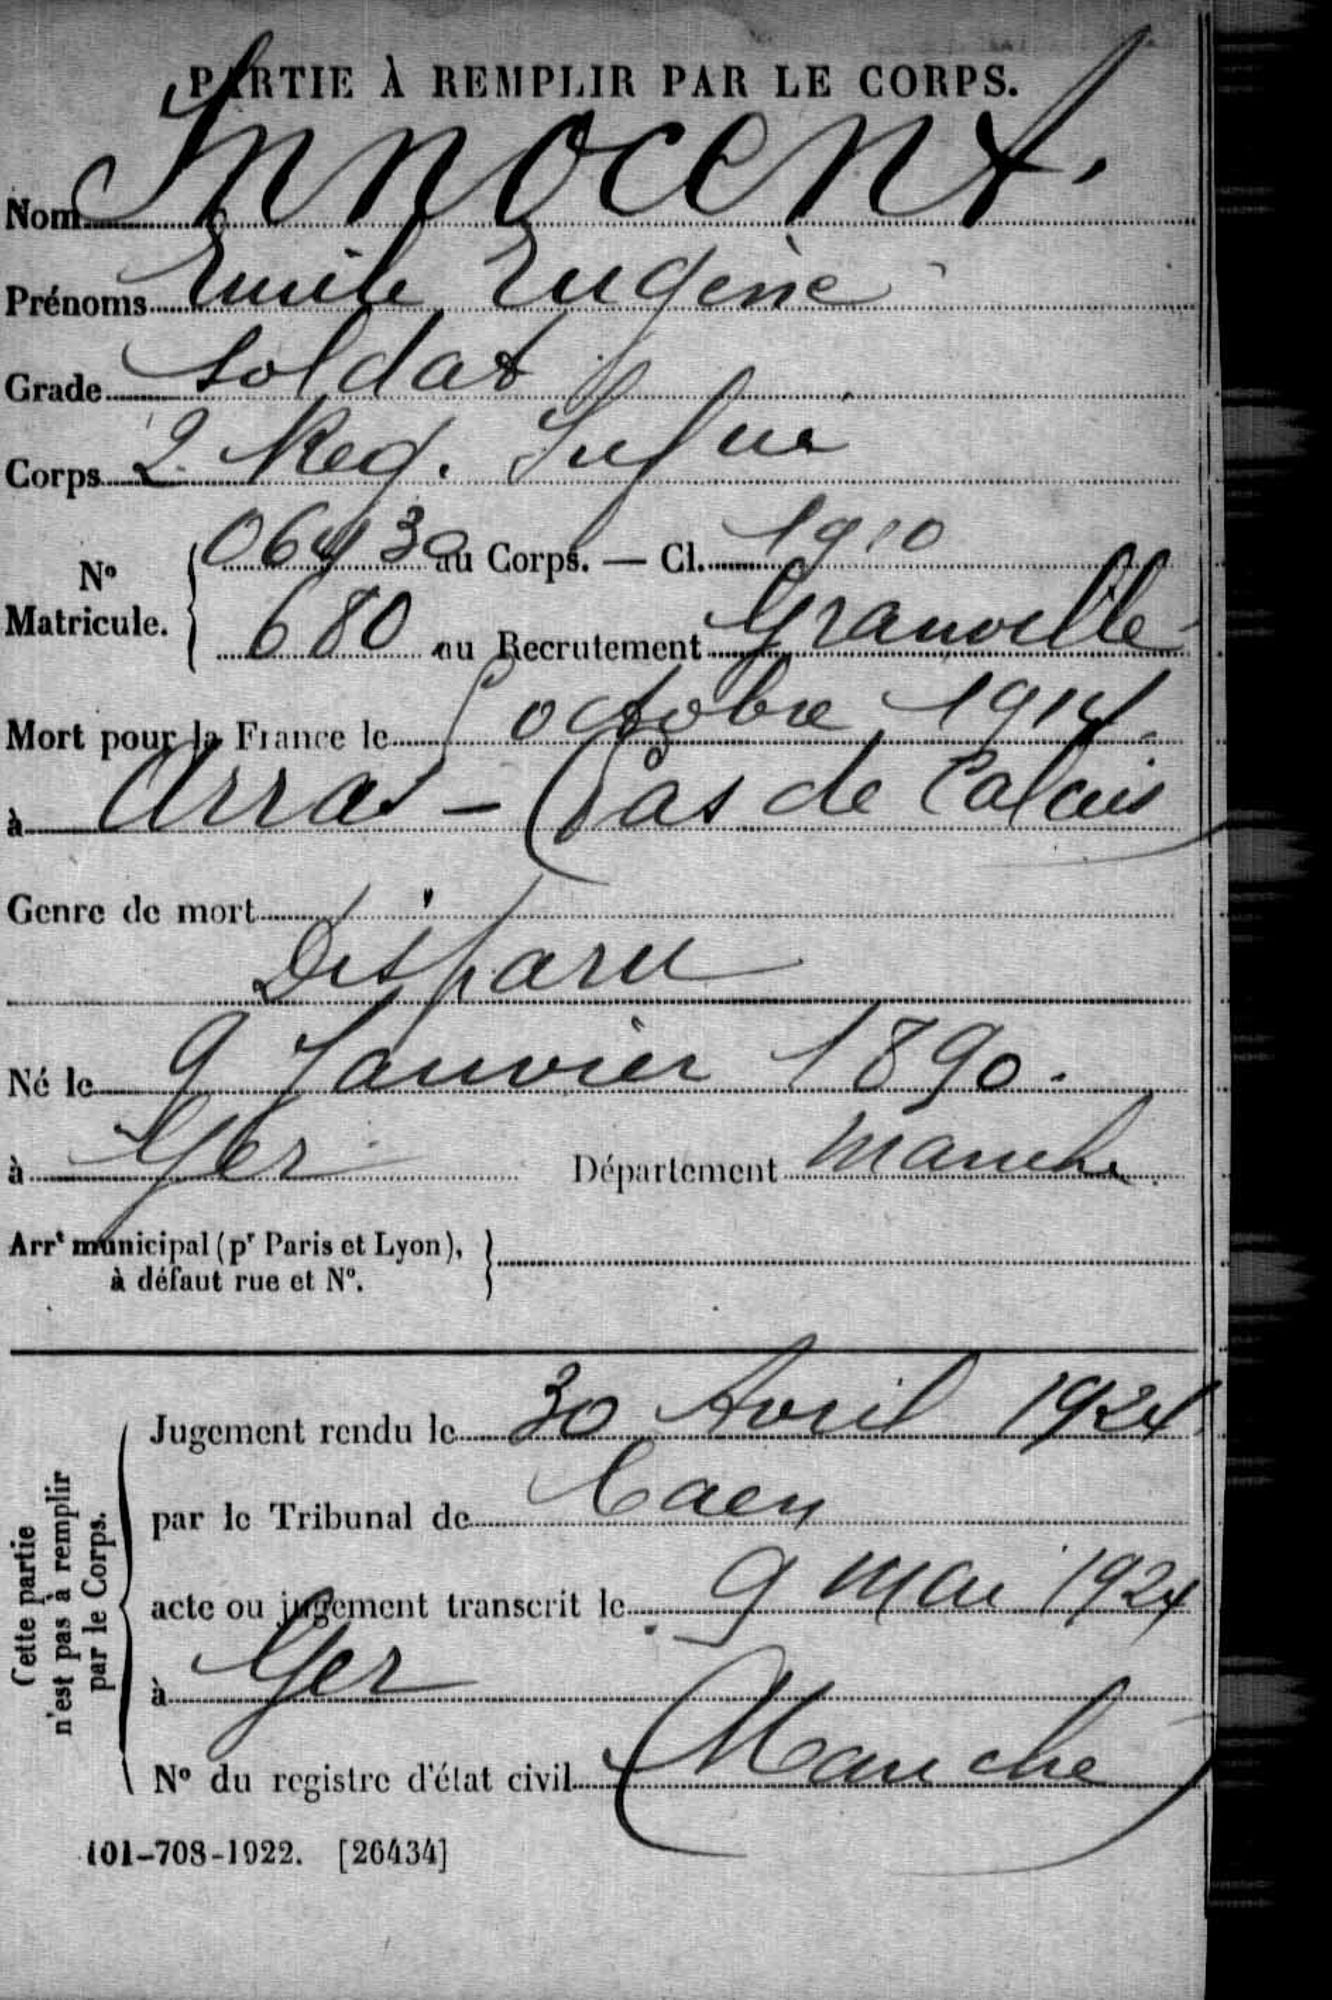 PARTIE À REMPLIR PAR LE CORPS.
Nom Innocent.
Prénoms Emile Eugène
Grade Soldat
Corps 2 Reg. Infie
N° Matricule. 06430 au Corps. — Cl. 1910
680 au Recrutement Granville
Mort pour la France le octobre 1914.
à Arras – (Pas de Calais
Genre de mort
Disparu
Né le 9 Janvier 1890.
à Ger Département Manche
Arrt municipal (pr Paris et Lyon),
à défaut rue et N°.
Cette partie
n'est pas à remplir
par le Corps.
Jugement rendu le 30 Avril 1924
par le Tribunal de Caen
acte ou jugement transcrit le 9 Mai 1924
à Ger
N° du registre d'état civil (Manche)
101-708-1922. [26434]